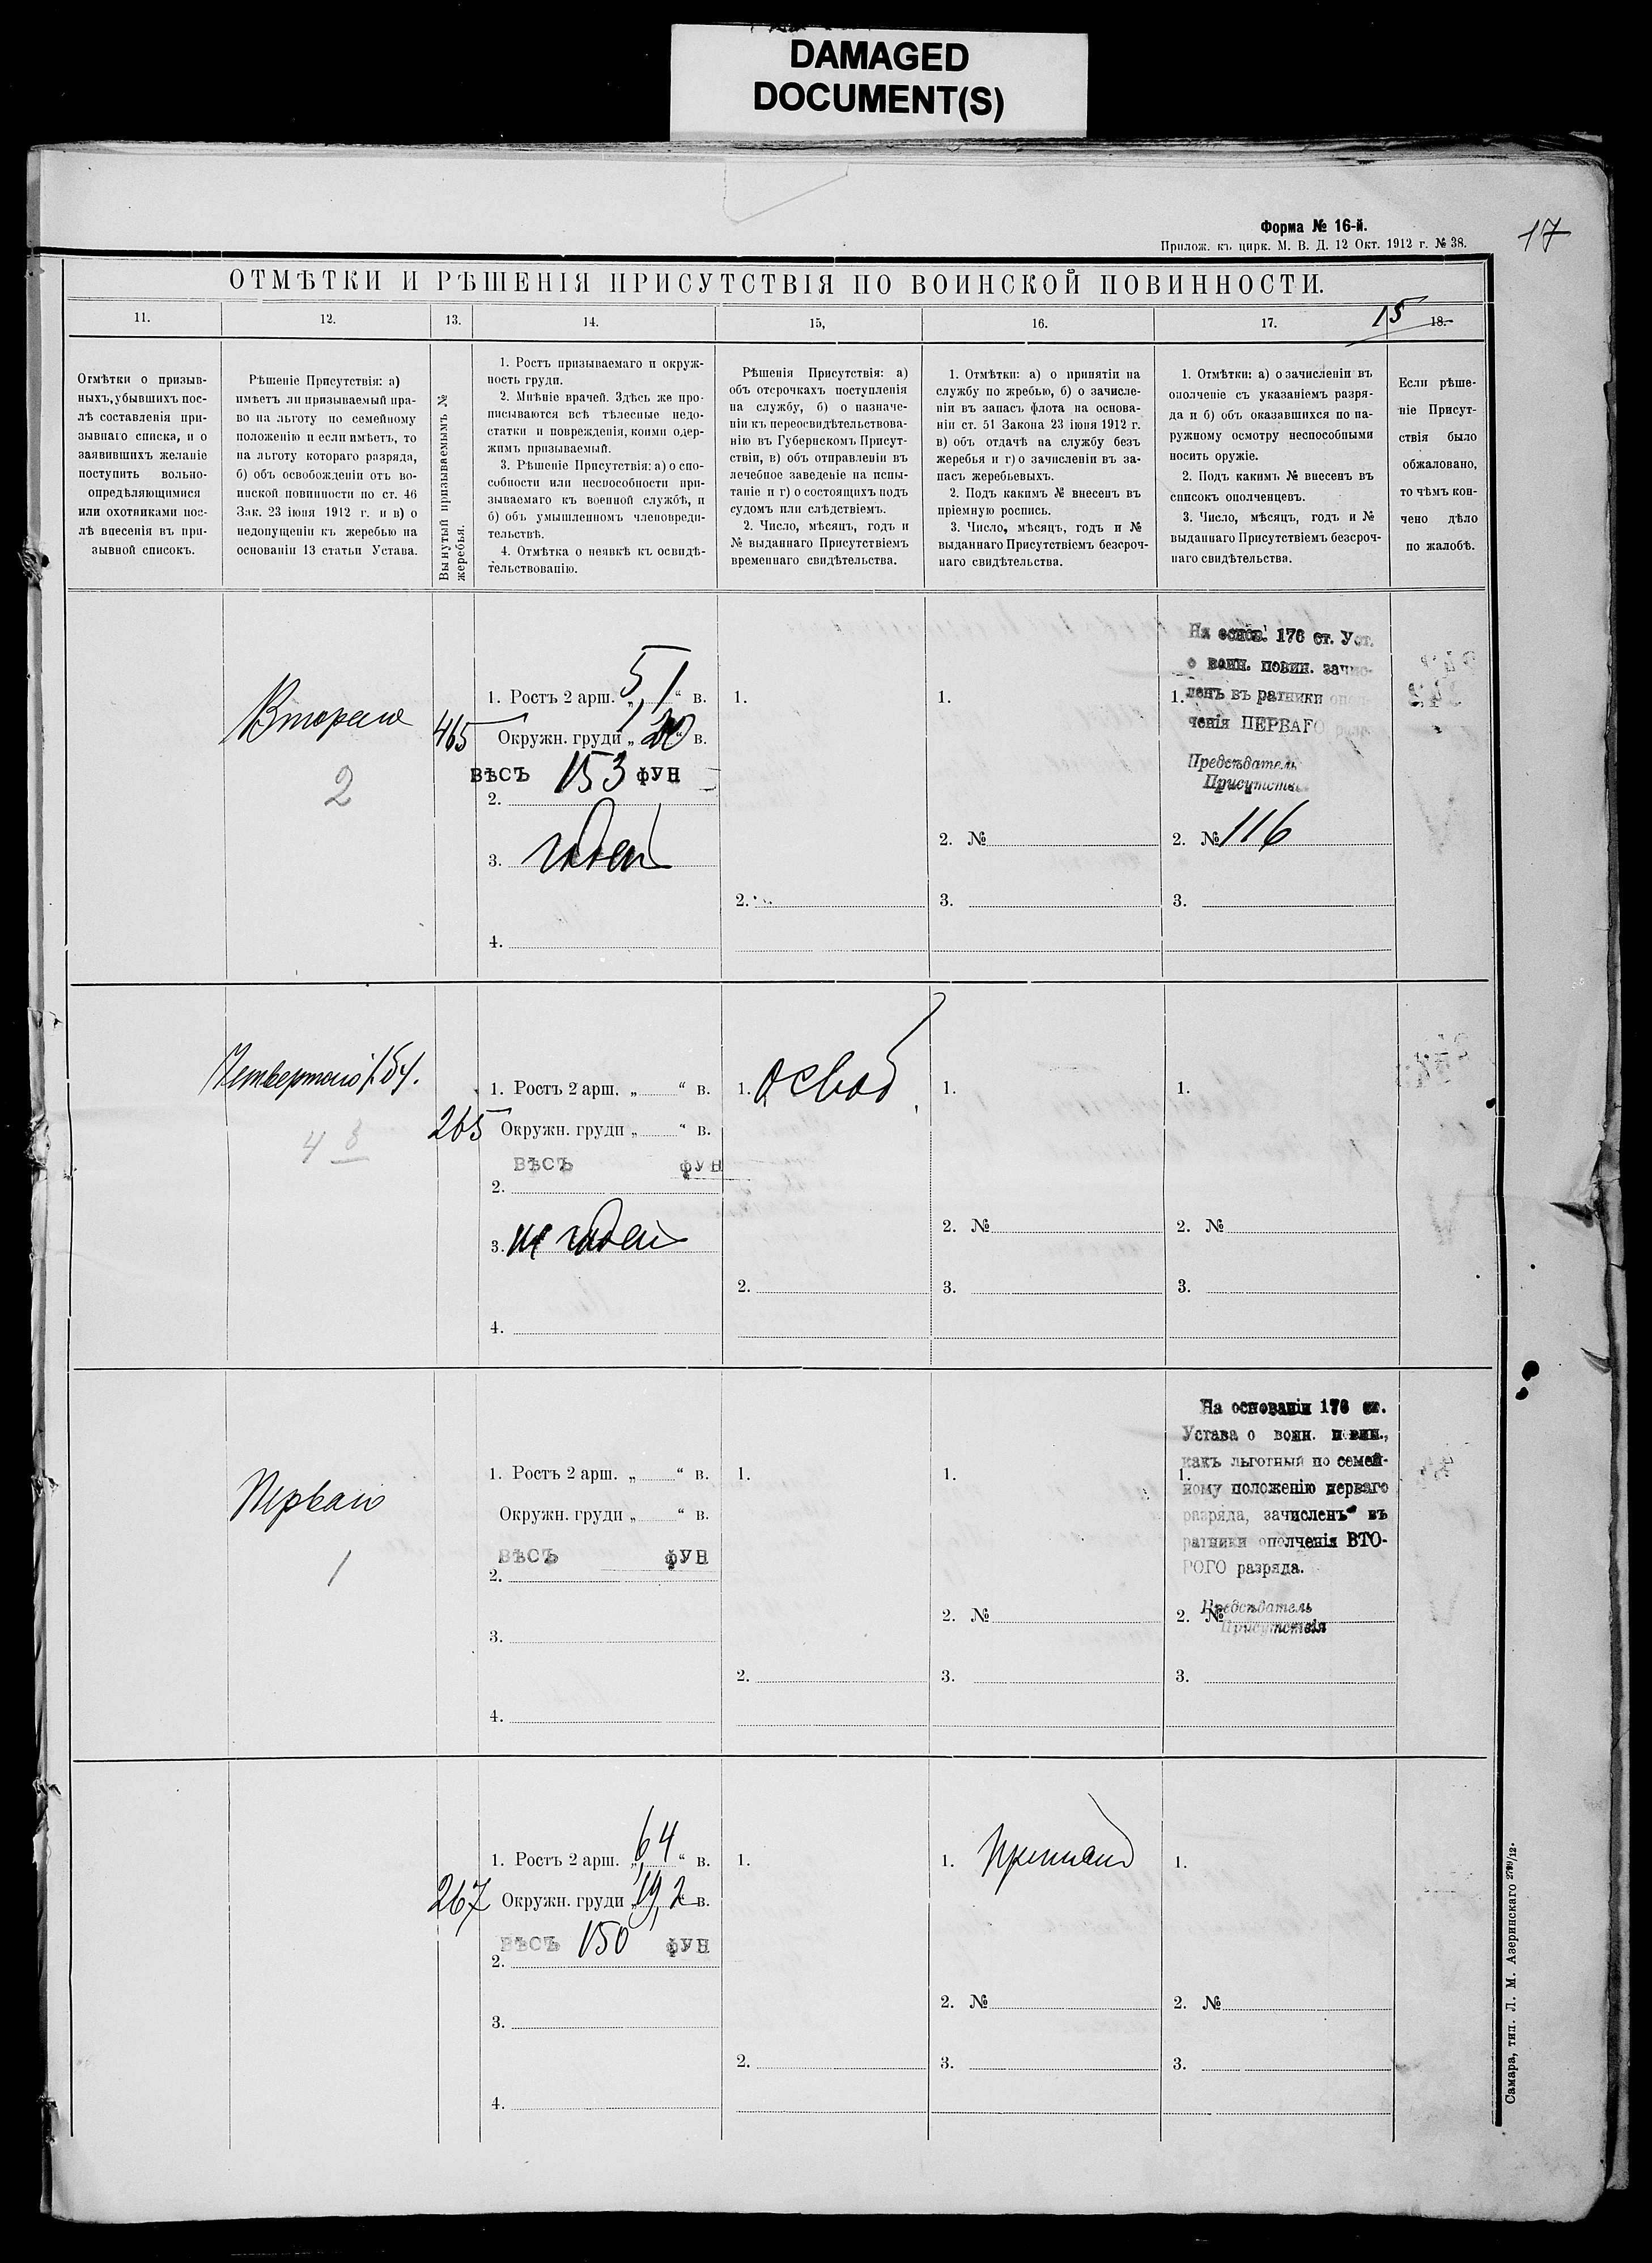 DAMAGED
DOCUMENT(S)
Форма № 16-й.
Прилож. къ цирк. М. В. Д. 12 Окт. 1912 г. № 38.
17
ОТМѢТКИ И РѢШЕНІЯ ПРИСУТСТВІЯ ПО ВОИНСКОЙ ПОВИННОСТИ.
15
11.
12.
13.
14.
15,
16.
17.
18.
Отмѣтки о призыв-
ныхъ, убывшихъ пос-
лѣ составленія при-
зывнаго списка, и о
заявившихъ желаніе
поступить вольно-
опредѣляющимися
или охотниками пос-
лѣ внесенія въ при-
зывной списокъ.
Рѣшеніе Присутствія: а)
имѣетъ ли призываемый пра-
во на льготу по семейному
положенію и если имѣетъ, то
на льготу котораго разряда,
б) объ освобожденіи отъ во-
инской повинности по ст. 46
Зак. 23 іюня 1912 г. и в) о
недопущеніи къ жеребью на
основаніи 13 статьи Устава.
Вынутый призываемымъ №
жеребья.
1. Ростъ призываемаго и окруж-
ность груди.
2. Мнѣніе врачей. Здѣсь же про-
писываются всѣ тѣлесные недо-
статки и поврежденія, коими одер-
жимъ призываемый.
3. Рѣшеніе Присутствія: а) о спо-
собности или неспособности при-
зываемаго къ военной службѣ, и
б) объ умышленномъ членовреди-
тельствѣ.
4. Отмѣтка о неявкѣ къ освидѣ-
тельствованію.
Рѣшенія Присутствія: а)
объ отсрочкахъ поступленія
на службу, б) о назначе-
ніи къ переосвидѣтельствова-
нію въ Губернскомъ Присут-
ствіи, в) объ отправленіи въ
лечебное заведеніе на испы-
таніе и г) о состоящихъ подъ
судомъ или слѣдствіемъ.
2. Число, мѣсяцъ, годъ и
№ выданнаго Присутствіемъ
временнаго свидѣтельства.
1. Отмѣтки: а) о принятіи на
службу по жребью, б) о зачисле-
ніи въ запасъ флота на основа-
ніи ст. 51 Закона 23 іюня 1912 г.
в) объ отдачѣ на службу безъ
жеребья и г) о зачисленіи въ за-
пасъ жеребьевыхъ.
2. Подъ какимъ № внесенъ въ
пріемную роспись.
3. Число, мѣсяцъ, годъ и №
выданнаго Присутствіемъ безсроч-
наго свидѣтельства.
1. Отмѣтки: а) о зачисленіи въ
ополченіе съ указаніемъ разря-
да и б) объ оказавшихся по на-
ружному осмотру неспособными
носить оружіе.
2. Подъ какимъ № внесенъ въ
списокъ ополченцевъ.
3. Число, мѣсяцъ, годъ и №
выданнаго Присутствіемъ безсроч-
наго свидѣтельства.
Если рѣше-
ніе Присут-
ствія было
обжаловано,
то чѣмъ кон-
чено дѣло
по жалобѣ.
Втораго
2
465
1. Ростъ 2 арш. „ 5,1 “ в.
Окружн. груди „ 20 “ в.
ВѢСЪ 153 ФУН
2.
3. годен
4.
1.
2.
1.
2. №
3.
На основ. 176 ст. Уст.
о воин. повин. зачис-
1. ленъ въ ратники опол-
ченія ПЕРВАГО разр.
Предсѣдатель
Присутствія
2. № 116
3.
Четвертаго
4 3
265
1. Ростъ 2 арш. „ “ в.
Окружн. груди „ “ в.
ВѢСЪ ФУН
2.
3. не годен
4.
1. освоб
2.
1.
2. №
3.
1.
2. №
3.
Перваго
1
1. Ростъ 2 арш. „ “ в.
Окружн. груди „ “ в.
ВѢСЪ ФУН
2.
3.
4.
1.
2.
1.
2. №
3.
На основаніи 176 ст.
Устава о воин. повин.,
какъ льготный по семей-
1.
ному положенію перваго
разряда, зачисленъ въ
ратники ополченія ВТО-
РОГО разряда.
Предсѣдатель
2. №
Присутствія
3.
267
1. Ростъ 2 арш. „ 6,4 “ в.
Окружн. груди „ 19,2 “ в.
ВѢСЪ 150 ФУН
2.
3.
4.
1.
2.
1. принят
2. №
3.
1.
2. №
3.
Самара, тип. Л. М. Азеринскаго